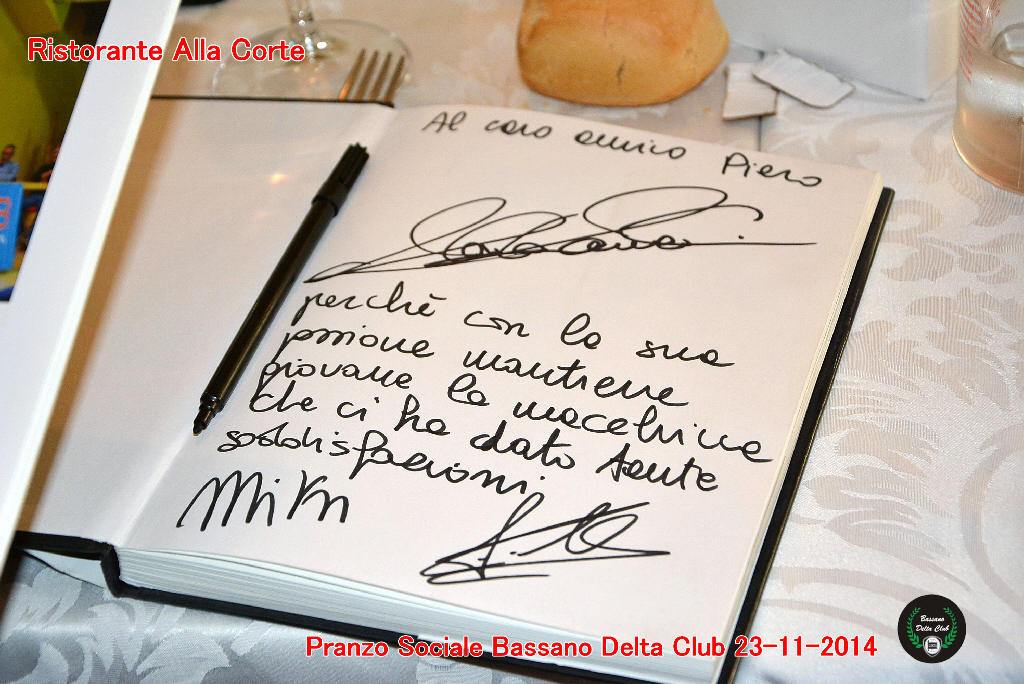 Ristorante Alla Corte
Al caro amico Piero
perchè con la sua
passione mantiene
giovane la macchina
che ci ha dato tante
soddisfazioni
Miki
Pranzo Sociale Bassano Delta Club 23-11-2014
Bassano
Delta Club